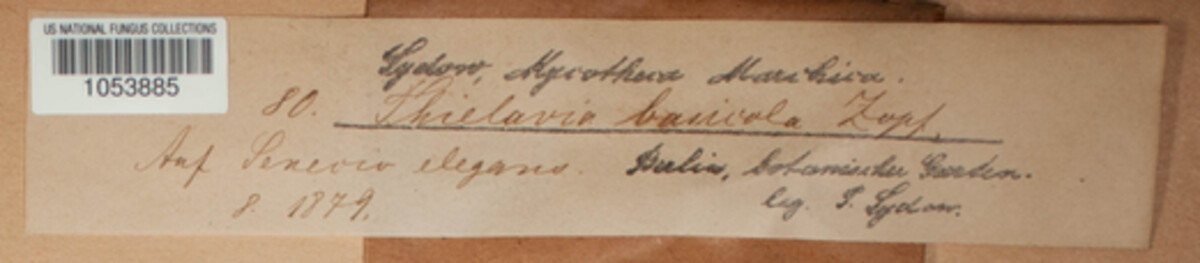 US NATIONAL FUNGUS COLLECTIONS
1053885
Sydow, Mycotheca Marchica.
80. Thielavia basicola Zopf.
Auf Senecio elegans. Berlin, botanischer Garten.
8. 1879. leg. P. Sydow.